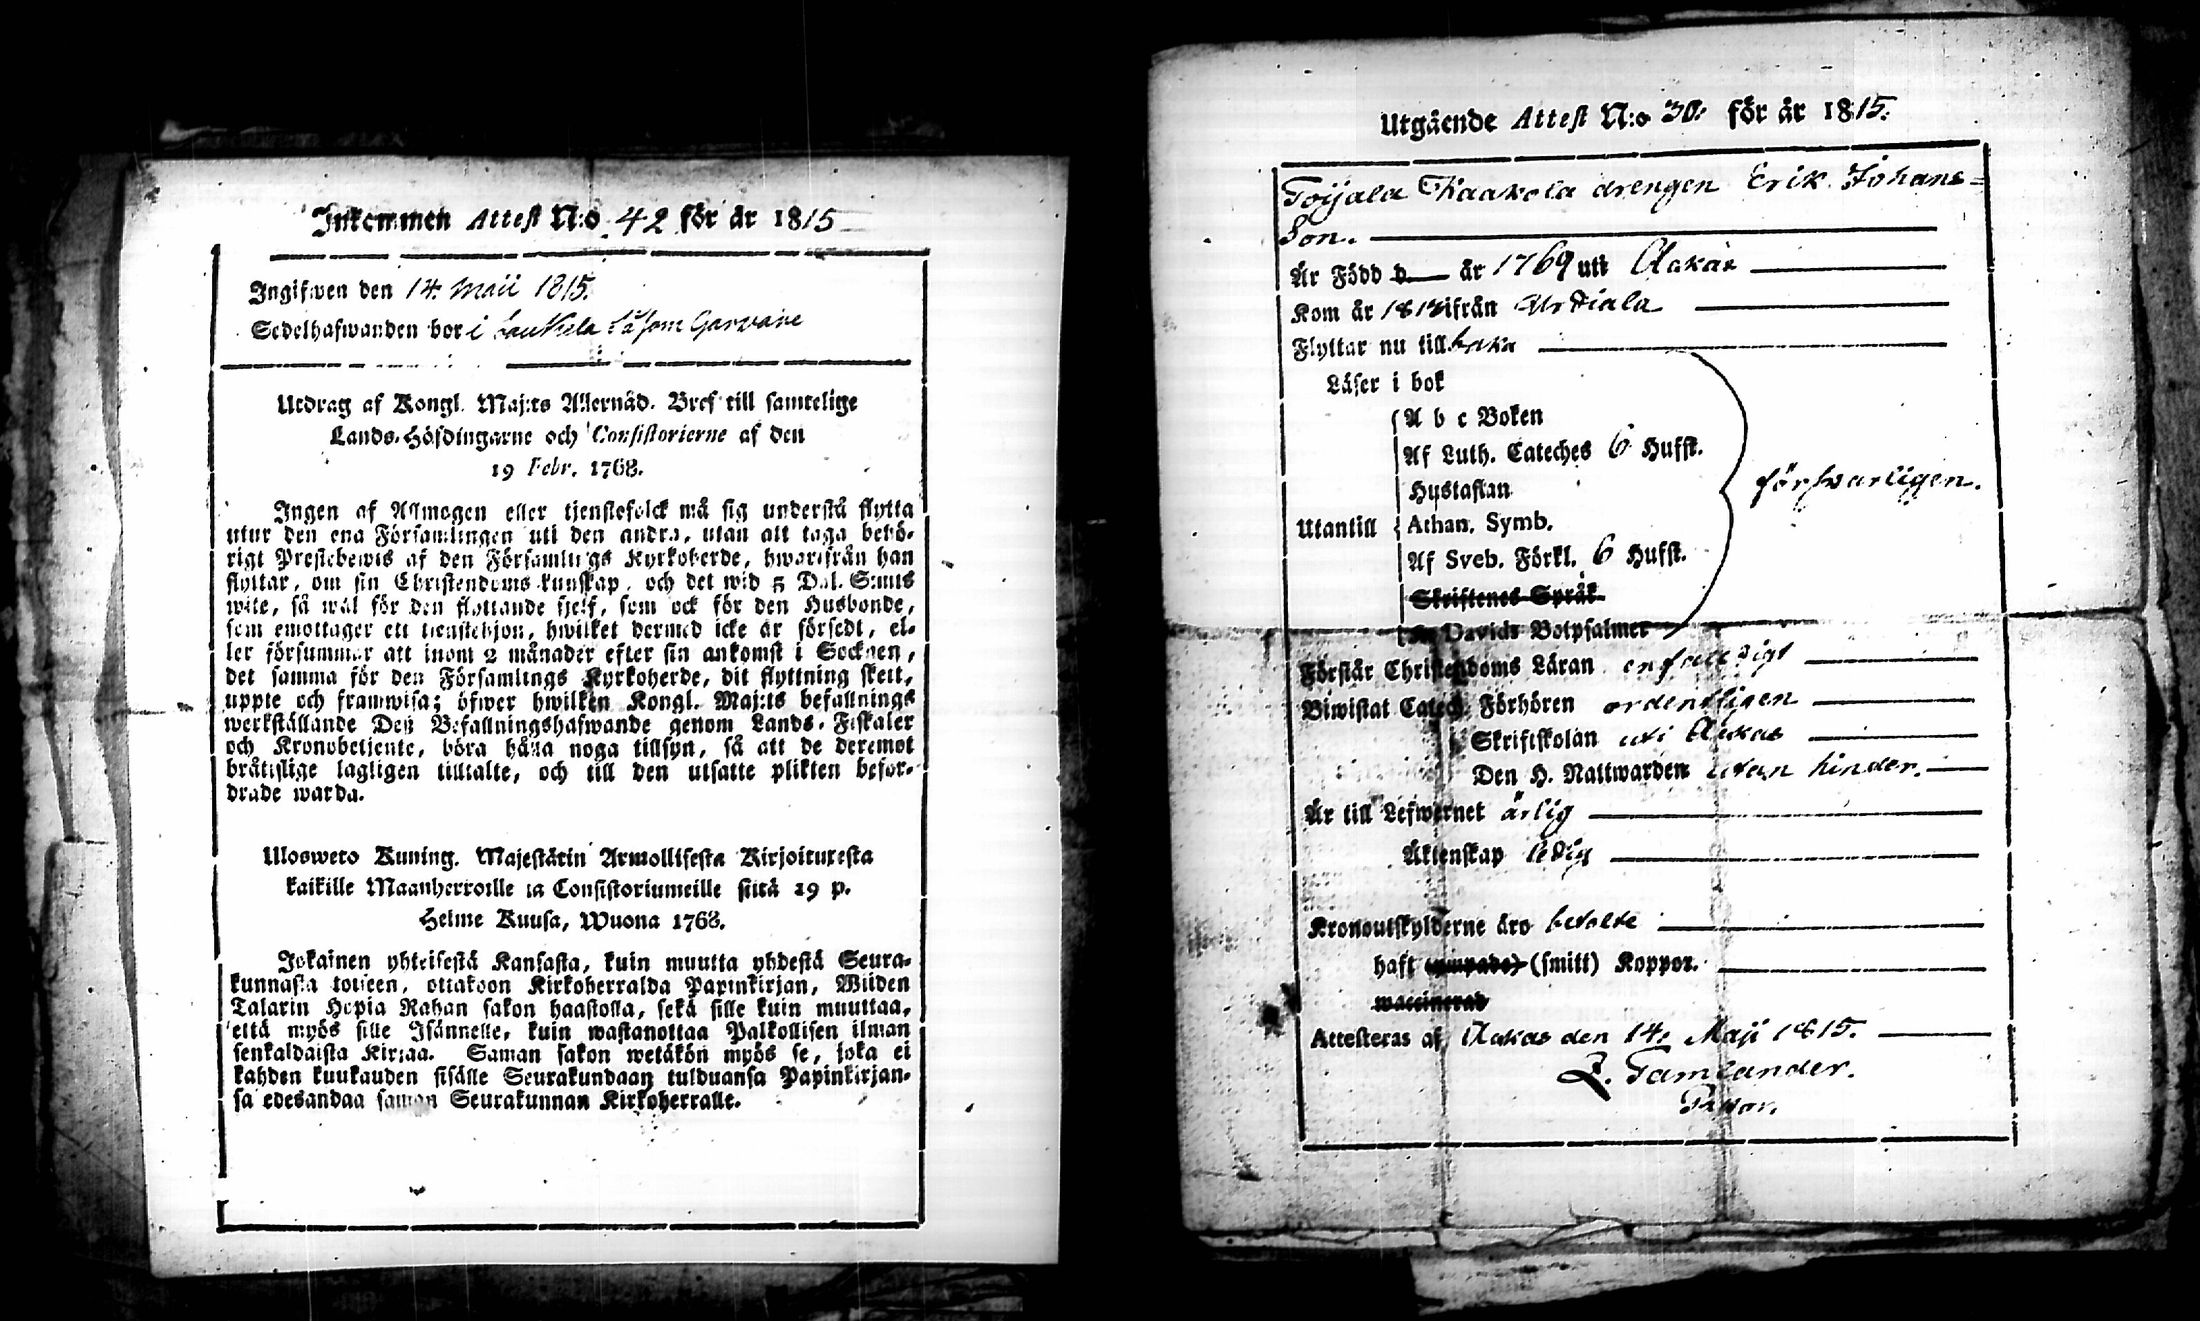 Inkommen Attest N:o 42 för år 1815
Ingifwen den 14. Maii 1815.
Sedelhafwanden bor i Laukela såsom Garvare
Utdrag af Kongl. Maj:ts Allernåd. Bref till samtelige
Lands-Höfdingarne och Consistorierne af den
19 Febr. 1768.
Ingen af Allmogen eller tjenstefolck må sig understå flytta
utur den ena Församlingen uti den andra, utan att taga behö-
rigt Prestebewis af den Församlings Kyrkoherde, hwarifrån han
flyttar, om sin Christendoms-kunskap, och det wid 5 Dal. S:mts
wite, så wäl för den flyttande sjelf, som ock för den Husbonde,
som emottager ett tjenstehjon, hwilket dermed icke är försedt, el-
ler försummar att inom 2 månader efter sin ankomst i Socknen,
det samma för den Församlings Kyrkoherde, dit flyttning skett,
uppte och framwisa; öfwer hwilken Kongl. Maj:ts befallnings
werkställande Deß Befallningshafwande genom Lands-Fiskaler
och Kronobetjente, böra hålla noga tillsyn, så att de deremot
bråtislige lagligen tilltalte, och till den utsatte plikten befor-
drade warda.
Ulosweto Kuning. Majestätin Armollisesta Kirjoituresta
kaikille Maanherroille ja Consistoriumeille siitä 19 p.
Helme Kuusa, Wuona 1768.
Jokainen yhteisestä Kansasta, kuin muutta yhdestä Seura-
kunnasta toiseen, ottakoon Kirkoherralda Papinkirjan, Wiiden
Talarin Hopia Rahan sakon haastolla, sekä sille kuin muuttaa,
että myös sille Isännelle, kuin wastanottaa Palkollisen ilman
senkaldaista Kirjaa. Saman sakon wetäkön myös se, joka ei
kahden kuukauden sisälle Seurakundaan tulduansa Papinkirjan-
sa edesandaa saman Seurakunnan Kirkoherralle.
Utgående Attest N:o 30. för år 1815.
Toijala Kaakola drengen Erik Johans=
Son.
Är Född d. år 1769 uti Ackas
Kom år 18 ifrån Urdiala
Flyttar nu tillbaka
Läser i bok
A b c Boken
Af Luth. Cateches 6 Hufst.
Hustaflan
Utantill Athan. Symb.
Af Sveb. Förkl. 6 Hufst.
Skriftenes Språk
Davids Botpsalmer
försvarligen.
Förstår Christendoms Läran enfaldigt
Biwistat Catech. Förhören ordentligen
Skriftskolan uti Ackas
Den H. Nattwarden utan hinder.
Är till Lefwernet ärlig
Äktenskap ledig
Kronoutskylderne äro betalte
haft (ympade) (smitt) Koppor.
waccinerad
Attesteras af Ackas den 14. Maji 1815.
Z. Tamlander.
Pastor.